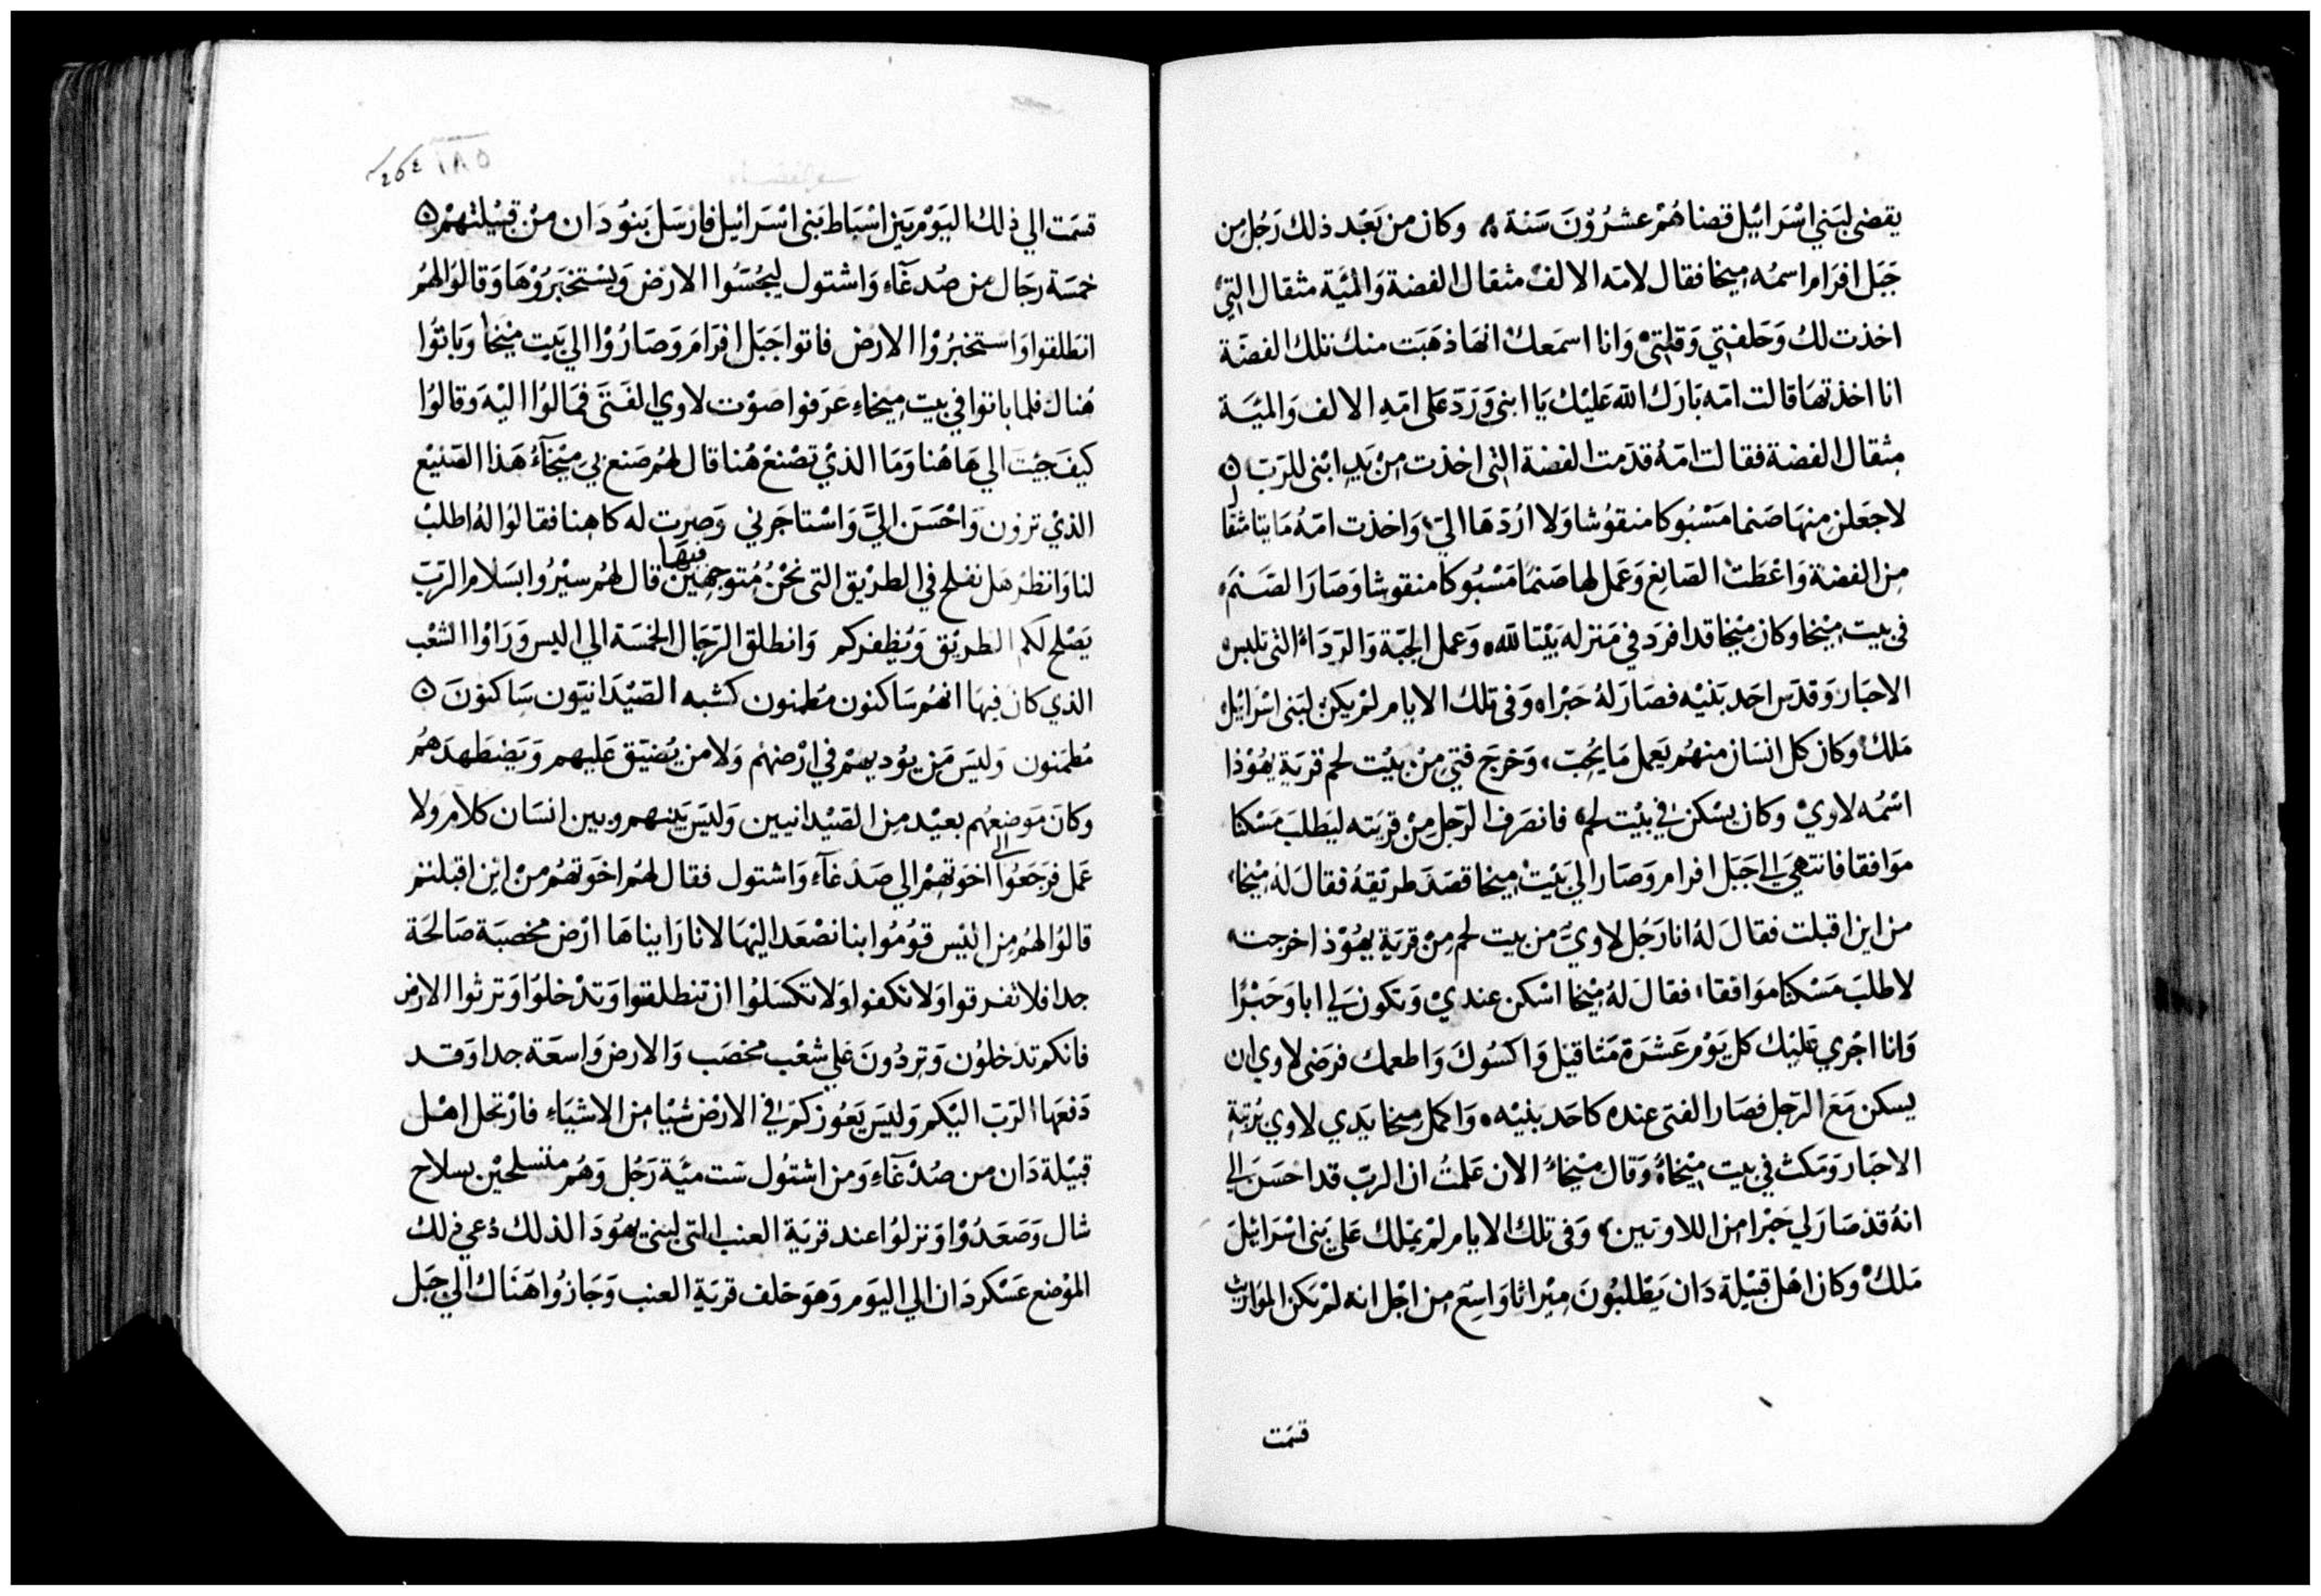 يقضى لبَني اسْرَائيل قضاهُمْ عشرُوْنَ سَنة ۞ وكان من بَعْد ذلك رَجُل مِن
جَبَل افرَام اسمُه مِيخا فقال لامّه الالف مثقال الفضة وَالميَّة مثقال التيْ
اخذت لكْ وَحَلفتِي وَقلتِيْ وَانا اسمَعك انهَا ذهَبَت منك تلك الفضّة
انا اخذتهَا قالت امّه بَارَك الله عَليْك يَا ابنى وَرَدّ عَلى امّهِ الالف وَالميَّة
مِثقال الفضة فقالت امّهُ قدّمت الفضة التى اخذت مِنْ يَدِ ابْنى للرَبّ ۞
لاجعَلن مِنهَا صَنما مَسْبُوكا منقوُشا وَلا ارُدّهَا اليَّ، وَاخذت امّهُ مَايتا مثقال
مِن الفضة وَاعْطَتْ الصَايغ وَعَمل لها صَنمًا مَسْبُوكا منقوشا وَصَارَ الصَنمَ
فى بيت مِيْخا وكان مِيْخا قد افرَد في مَنزله بَيْتا لله، وَعمل الجبّة وَالرّدَاءْ التى تلبس
الاحبَار وَقدّس احَد بَنيْه فصَارَ لهُ حَبْراه وَفى تلك الايام لمْ يكنْ لبَنى اسْرَائيل
مَلكْ وكان كل انسَان منهُم يَعمل مَا يُحِبّ، وَخرَج فتيٍ مِنْ بيْت لحم قرَية يهُوْذا
اسْمُه لاوِيْ وكان يسْكن في بيْت لحمْ فانصَرَف الرَجل مِنْ قريَته ليَطلبَ مَسْكنا
موَافقا فانتهَي الي جَبَل افرام وَصَارَ الي بَيْت مِيخا قصَدَ طريْقهُ فقالَ لهُ مِيْخا،
من اين اقبلت فقالَ لهُ انا رَجُل لاوِيٌّ من بيت لحم مِنْ قريَةِ يهُوْذا خرجت
لاطلبَ مَسْكنا موَافقا، فقال لهُ مِيْخا اسْكن عندِيْ وَتكون لي ابا وَحَبْرًا
وَانا اجْرِي عَليْك كل يَوْم عَشرَة مَثاقيْل وَاكسُوكَ وَاطعمك فرَضى لاوي ان
يسكن مَعَ الرَجل فصَار الفتى عنده كاحَد بَنيْه، وَاكمل مِيخا يَدي لاوي برُتبَةِ
الاحبَار وَمَكث في بيت مِيْخاءْ وَقال مِيْخاءُ الان عَلمتُ ان الربّ قد احْسَنَ الي
انهُ قدْ صَارَ لي حَبْرا مِن اللاوتين، وَفى تلك الايام لمْ يَملك عَلي بَنى اسْرَائيلَ
مَلكْ وكان اهْل قبيْلة دَان يَطْلبُونَ مِيْراثا وَاسِع مِن اجْل انه لمْ تكن الموَاريث
قسمَت
١٨٥
قسمَت الي ذلك اليَوْم بَين اسْبَاط بَنى اسْرَائيل فارْسَل بَنوُدَان مِنْ قبيْلتهمْ ۞
خمسَة رجَال من صُدْغاَء وَاشتول ليجُسّوا الارْض وَيسْتخبَرُوْهَا وَقالوُا لهمُ
انطلقوا وَاسْتخبرُوْا الارْض فاتوا جَبَل افرَام وَصَارُوْا الي بَيت مِيْخا وَباتوُا
هُناك فلما باتوا في بيت مِيخاء عَرَفوا صَوْت لاوي الفَتَى فَمالوُا اليْهِ وَقالوُا
كيفَ جيْتَ الي هَاهُنا وَمَا الذيْ تصْنعْ هُنا قال لهمُ صَنع بي مِيْخآءُ هَذا الصَنيْع
الذيْ ترون وَاحْسَنَ اليَّ وَاسْتاجَرني وَصِرت له كاهِنا فقالوُا لهُ اطلبْ
لنا وَانظرْ هَل نفلح في الطريْق التى نحْنُ مُتوجهيْن فيْهَا قال لهُم سيْرُوا بسَلام الرَبّ
يَصْلح لكم الطريْق وَيُظفركم وَانطلق الرّجَال الخمْسَة الي اليس وَرَاوْا الشعْب
الذي كان فيهَا انهُم سَاكنون مُطمنون كشبه الصَيْدَانيّون سَاكنوْنَ ۞
مُطمَنون وَليَس مَن يؤديهمْ في ارْضهُم وَلا من يُضيَق عَليهم وَيَضطَهدَهمُ
وكانَ مَوضِعهُم بعيْد مِن الصَيْدانيين وَليَس بَينهم وبين انسَان كلامْ وَلا
عَمل فرَجَعُوا الى اخوَتهمْ الي صَدْغاَء وَاشتول فقال لهُم اخوَتهُم مِنْ ايْن اقبلتم
قالوُا لهُم مِن اليْس قوْمُوا بنا نصْعَد اليْهَا لانا رَايناهَا ارْض مخصبَة صَالحَة
جدا فلا تفرقوا وَلا تكفوا وَلا تكسَلوُا ان تنطلقوا وَتدْخلوُا وَترثوا الارْض
فانكم تدْخلوُن وَترِدُونَ عَلي شعْب مخصَب وَالارض وَاسعَة جدا وَقد
دَفعهَا الرّبّ اليْكم وَليَس يَعُوزكمْ في الارْض شيْا مِن الاشيَاءِ فارْتحل اهْل
قبيْلة دَان من صُدْغآء وَمن اشتوُل سَت ميَّة رَجُل وَهُم متسلحيْن بسلاح
شال وَصَعَدُوْا وَنزلوُا عند قريَة العنب التى لبنى يهُوْدَا لذلك دُعي ذلك
الموْضع عَسْكر دَان الي اليَوم وَهوَ خلف قريَةِ العنب وَجَازُوا هَنَاك الي جَبَل